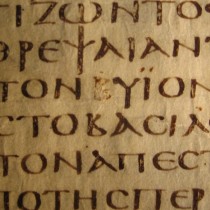 ΤΙΖΩΝΤΟΣ
ΘΡΕΨΑΙΑΝΤ
ΤΟΝΥΙΟΝ
ΣΤΟΒΑΣΙΛ
ΤΟΝΑΠΕΣΤ
ΠΟΤΗΣΠΕΡ